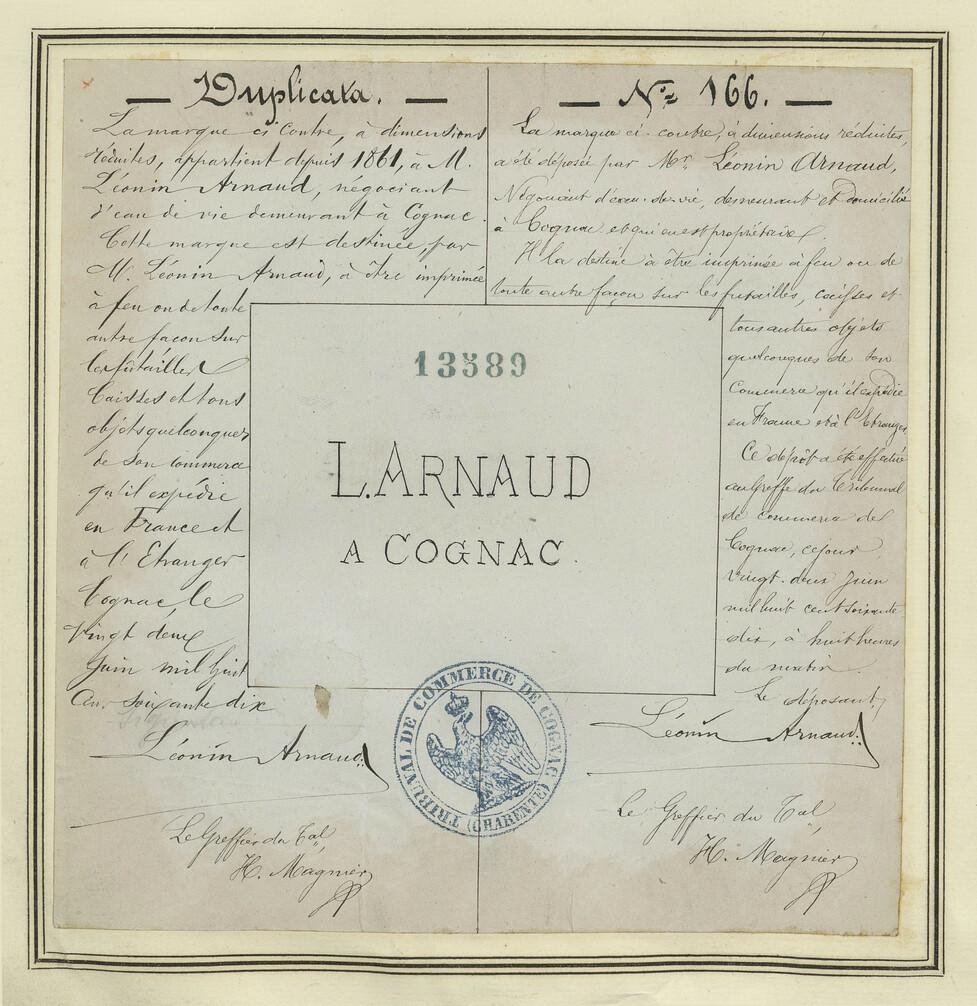 Duplicata.
La marque ci contre, à dimensions
réduites, appartient depuis 1861, à M.
Léonin Arnaud, négociant
d'eau de vie demeurant à Cognac.
Cette marque est destinée, par
M. Léonin Arnaud, à être imprimée
à feu ou de toute
autre façon sur
les futailles
Caisses et tous
objets quelconques
de son commerce
qu'il expédie
en France et
à l'Etranger
Cognac, le
vingt deux
Juin mil huit
cent soixante dix
Léonin Arnaud
Le Greffier du Tal,
H. Magnier
N° 166.
La marque ci-contre, à dimensions réduites,
a été déposée par Mr Léonin Arnaud,
Négociant d'eau-de-vie, demeurant et domicilié
à Cognac, et qui en est propriétaire
Il la destine à être imprimée à feu ou de
toute autre façon sur les futailles, caisses et
tous autres objets
quelconques de son
Commerce qu'il expédie
en France et à l'Etranger.
Ce dépôt a été effectué
au Greffe du Tribunal
de commerce de
Cognac, ce jour
vingt-deux Juin
mil huit cent soixante
dix, à huit heures
du matin.
Le déposant,
Léonin Arnaud
Le Greffier du Tal,
H. Magnier
13589
L. ARNAUD
A COGNAC.
TRIBUNAL DE COMMERCE DE COGNAC
(CHARENTE)